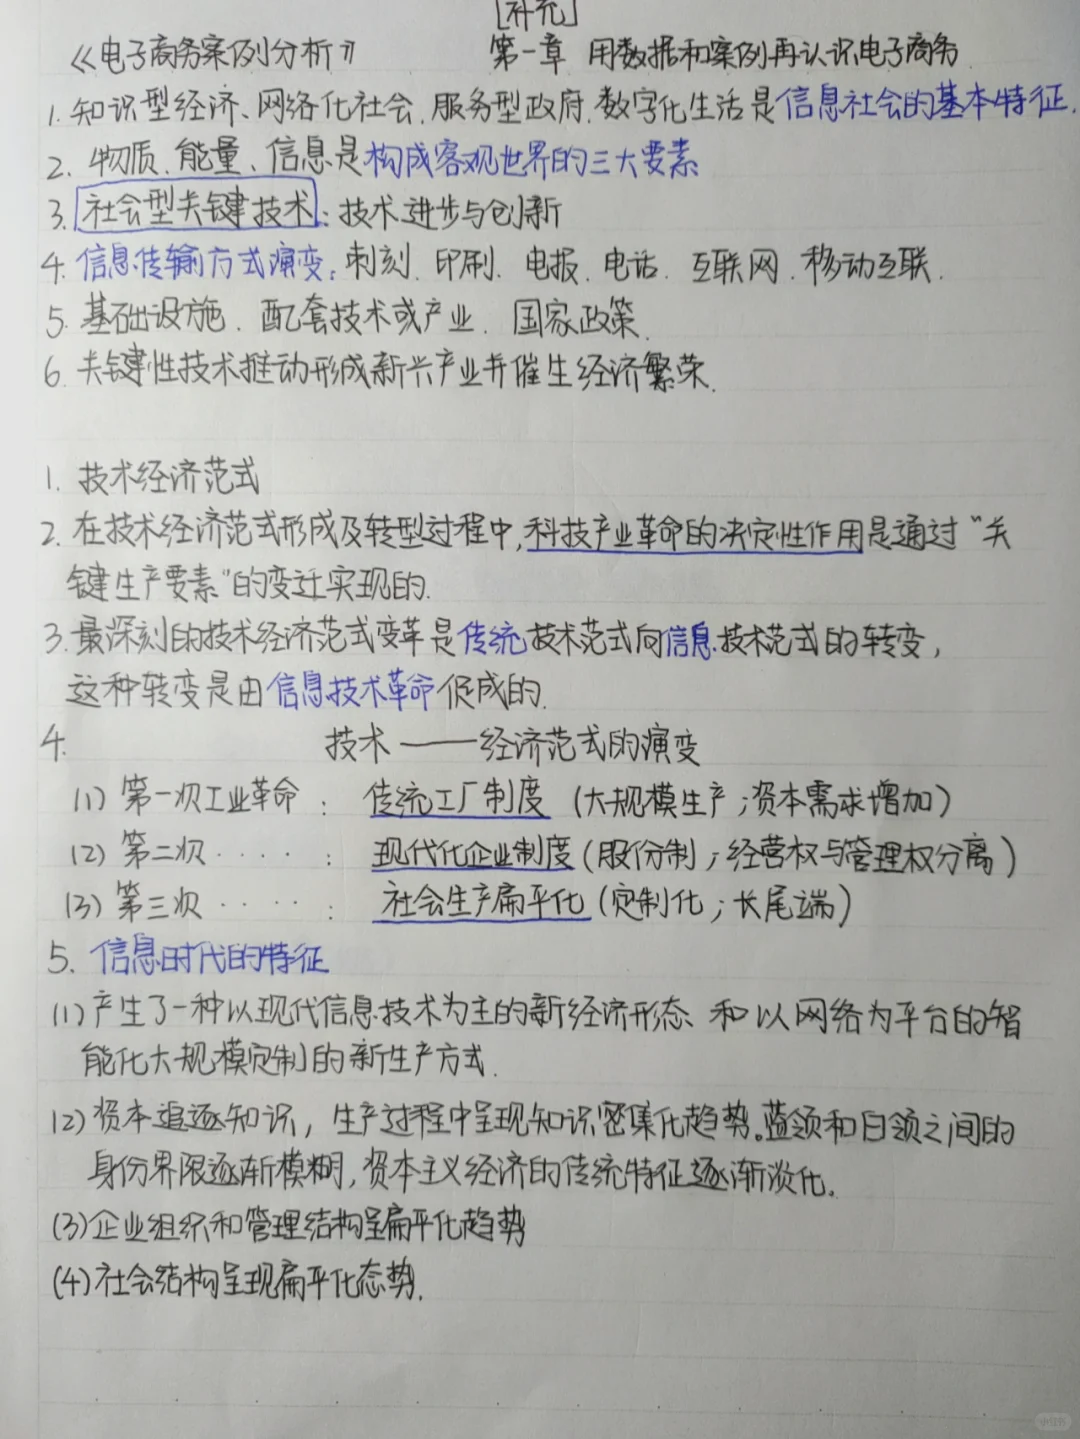 [补充]
《电子商务案例分析》 第一章 用数据和案例再认识电子商务
1. 知识型经济、网络化社会、服务型政府、数字化生活是信息社会的基本特征.
2. 物质、能量、信息是构成客观世界的三大要素
3. 社会型关键技术：技术进步与创新
4. 信息传输方式演变：刺刻、印刷、电报、电话、互联网、移动互联.
5. 基础设施、配套技术或产业、国家政策.
6. 关键性技术推动形成新兴产业并催生经济繁荣.
1. 技术经济范式
2. 在技术经济范式形成及转型过程中,科技产业革命的决定性作用是通过“关
键生产要素”的变迁实现的.
3. 最深刻的技术经济范式变革是传统技术范式向信息技术范式的转变,
这种转变是由信息技术革命促成的.
4. 技术——经济范式的演变
(1) 第一次工业革命： 传统工厂制度 (大规模生产；资本需求增加)
(2) 第二次····： 现代化企业制度 (股份制；经营权与管理权分离)
(3) 第三次····： 社会生产扁平化 (定制化；长尾端)
5. 信息时代的特征
(1) 产生了一种以现代信息技术为主的新经济形态、和以网络为平台的智
能化大规模定制的新生产方式.
(2) 资本追逐知识，生产过程中呈现知识密集化趋势。蓝领和白领之间的
身份界限逐渐模糊,资本主义经济的传统特征逐渐淡化。
(3) 企业组织和管理结构呈扁平化趋势
(4) 社会结构呈现扁平化态势.
小红书